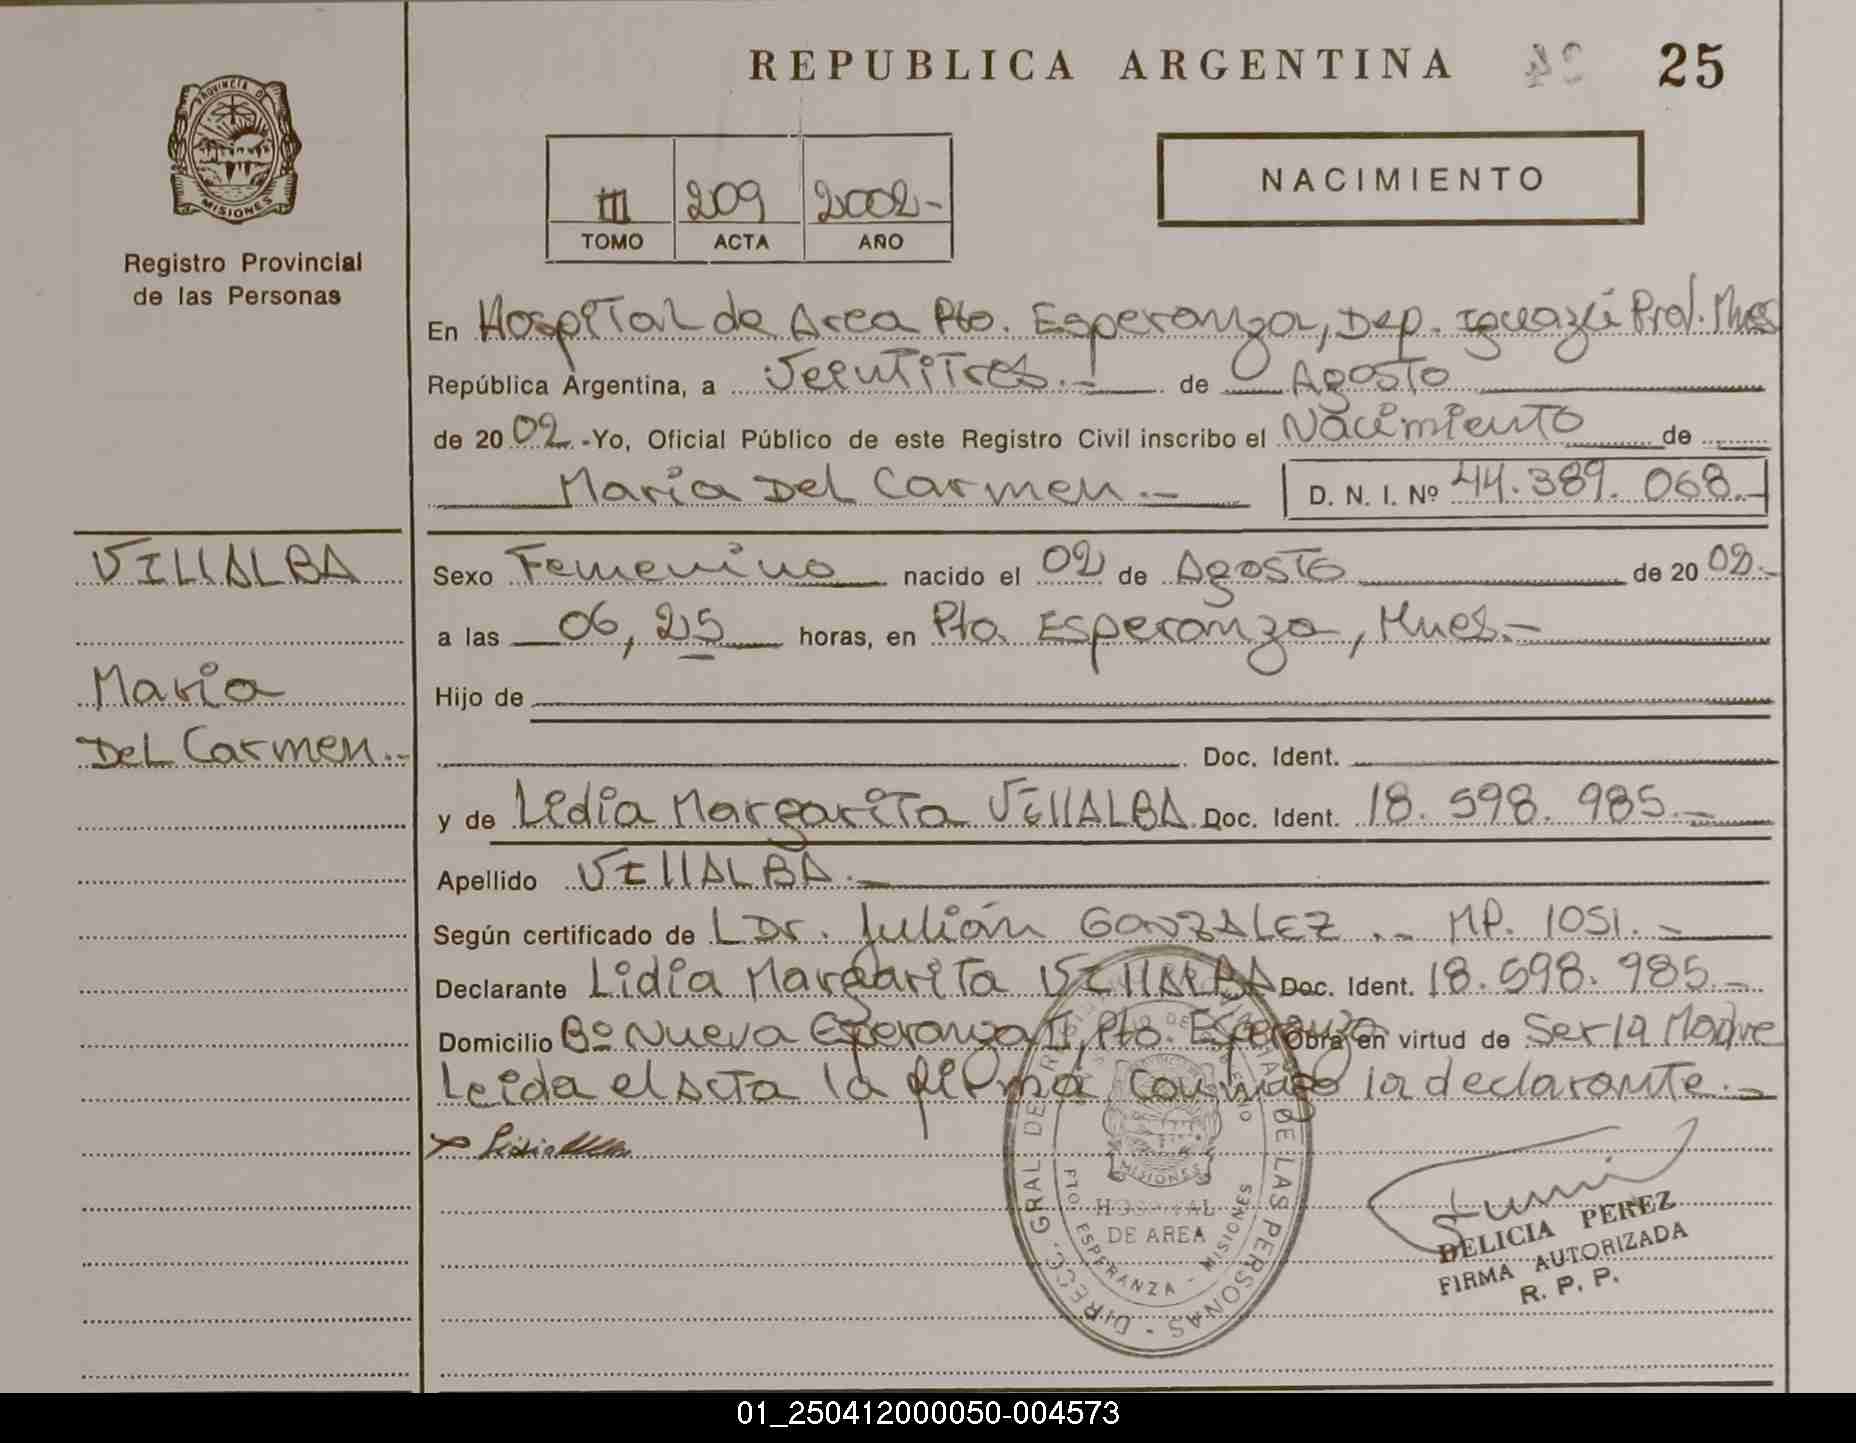 REPUBLICA ARGENTINA 25
PROVINCIA DE
MISIONES
Registro Provincial
de las Personas
NACIMIENTO
III 209 2002-
TOMO ACTA AÑO
En Hospital de Area Pto. Esperanza, Dep. Iguazú Prov. Mnes
República Argentina, a Veintitres.- de Agosto
de 2002.-Yo, Oficial Público de este Registro Civil inscribo el Nacimiento de
Maria Del Carmen.- D. N. I. Nº 44.389.068.-
VILLALBA
Maria
Del Carmen.-
Sexo Femenino nacido el 02 de Agosto de 2002.-
a las 06,25 horas, en Pto. Esperanza, Mnes.-
Hijo de
Doc. Ident.
y de Lidia Margarita VillALBA Doc. Ident. 18.598.985.-
Apellido VIllALBA.-
Según certificado de L Dr. Julián GONZALEZ .- MP. 1051.-
Declarante Lidia Margarita VIllALBA Doc. Ident. 18.598.985.-
Domicilio Bº Nueva Esperanza II, Pto. Esperanza Obra en virtud de Ser la Madre
Leida el Acta la firma conmigo la declarante.-
x Lidia
DIRECC. GRAL DE REGISTRO DE LAS PERSONAS
MISIONES
HOSPITAL
DE AREA
PTO. ESPERANZA - MISIONES
DELICIA PEREZ
FIRMA AUTORIZADA
R. P. P.
01_250412000050-004573